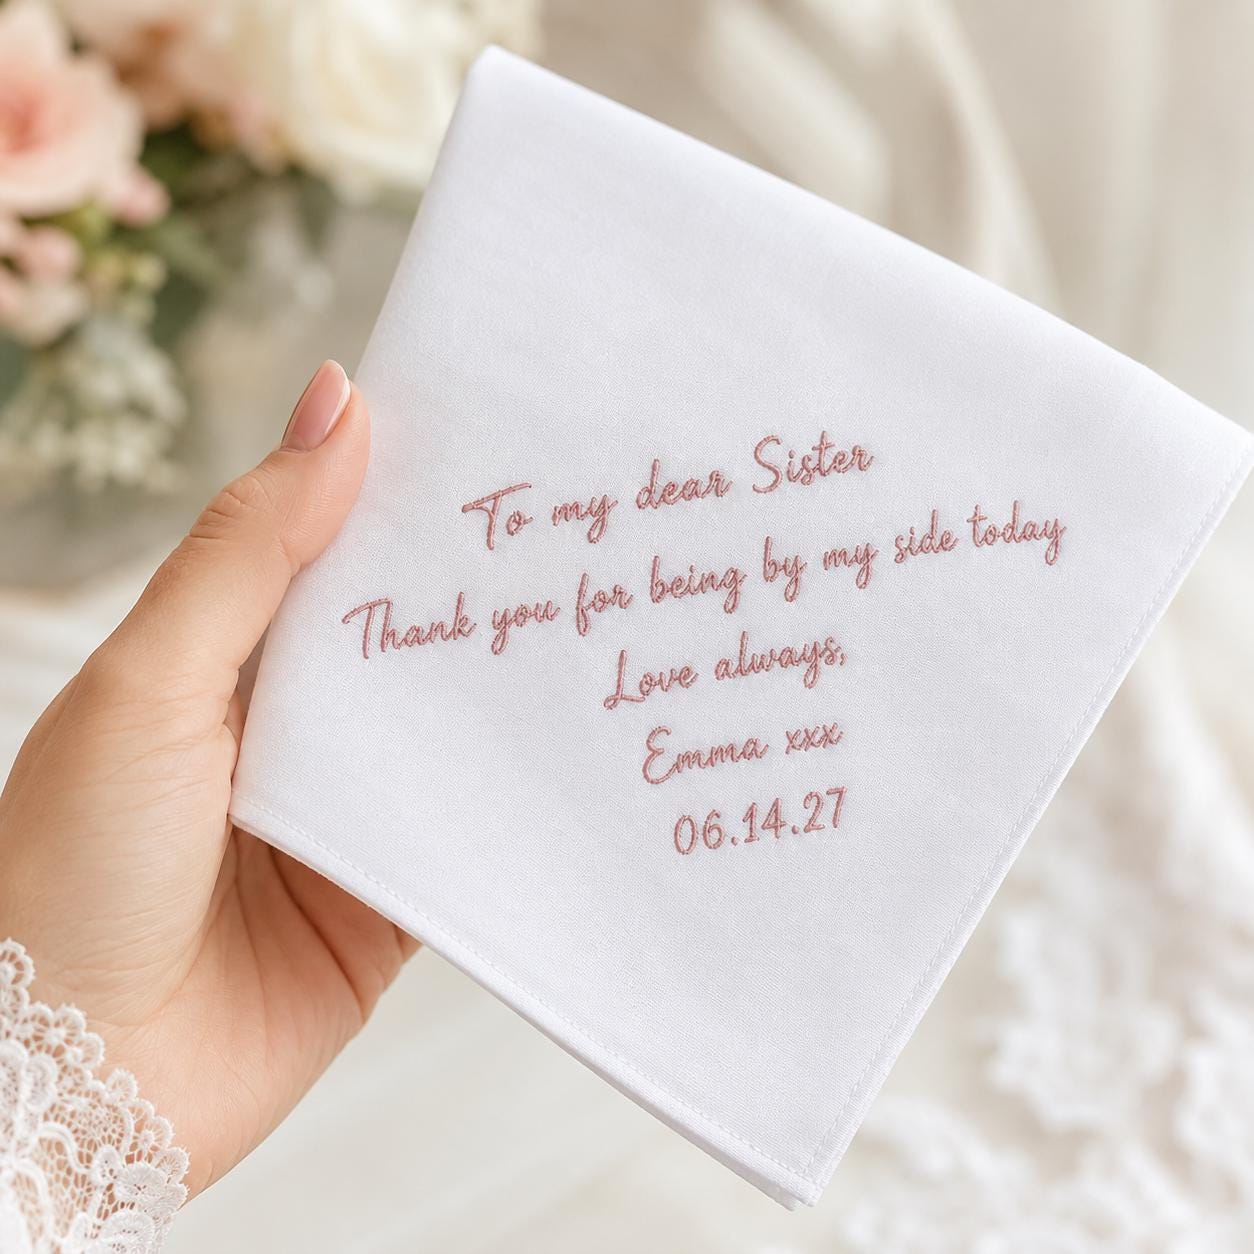 To my dear Sister
Thank you for being by my side today
Love always,
Emma xxx
06.14.27